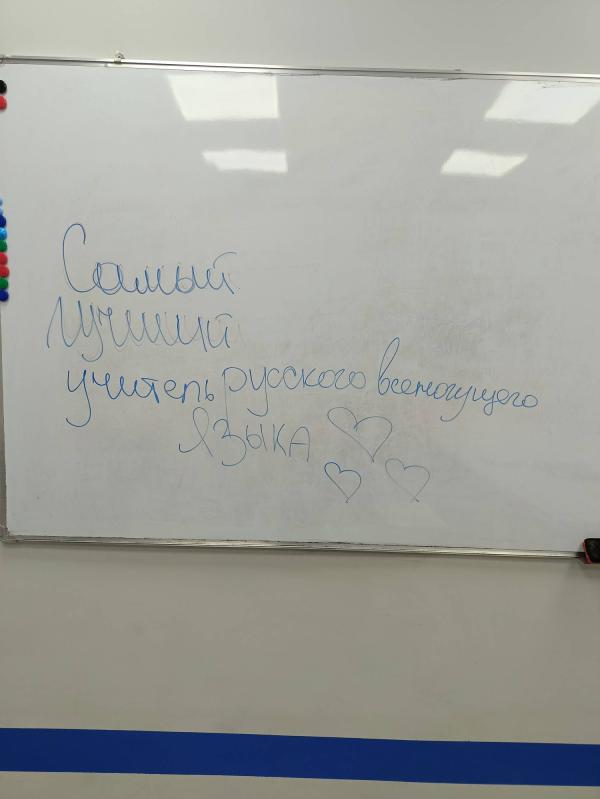 Самый
лучший
учитель русского всемогущего
языка